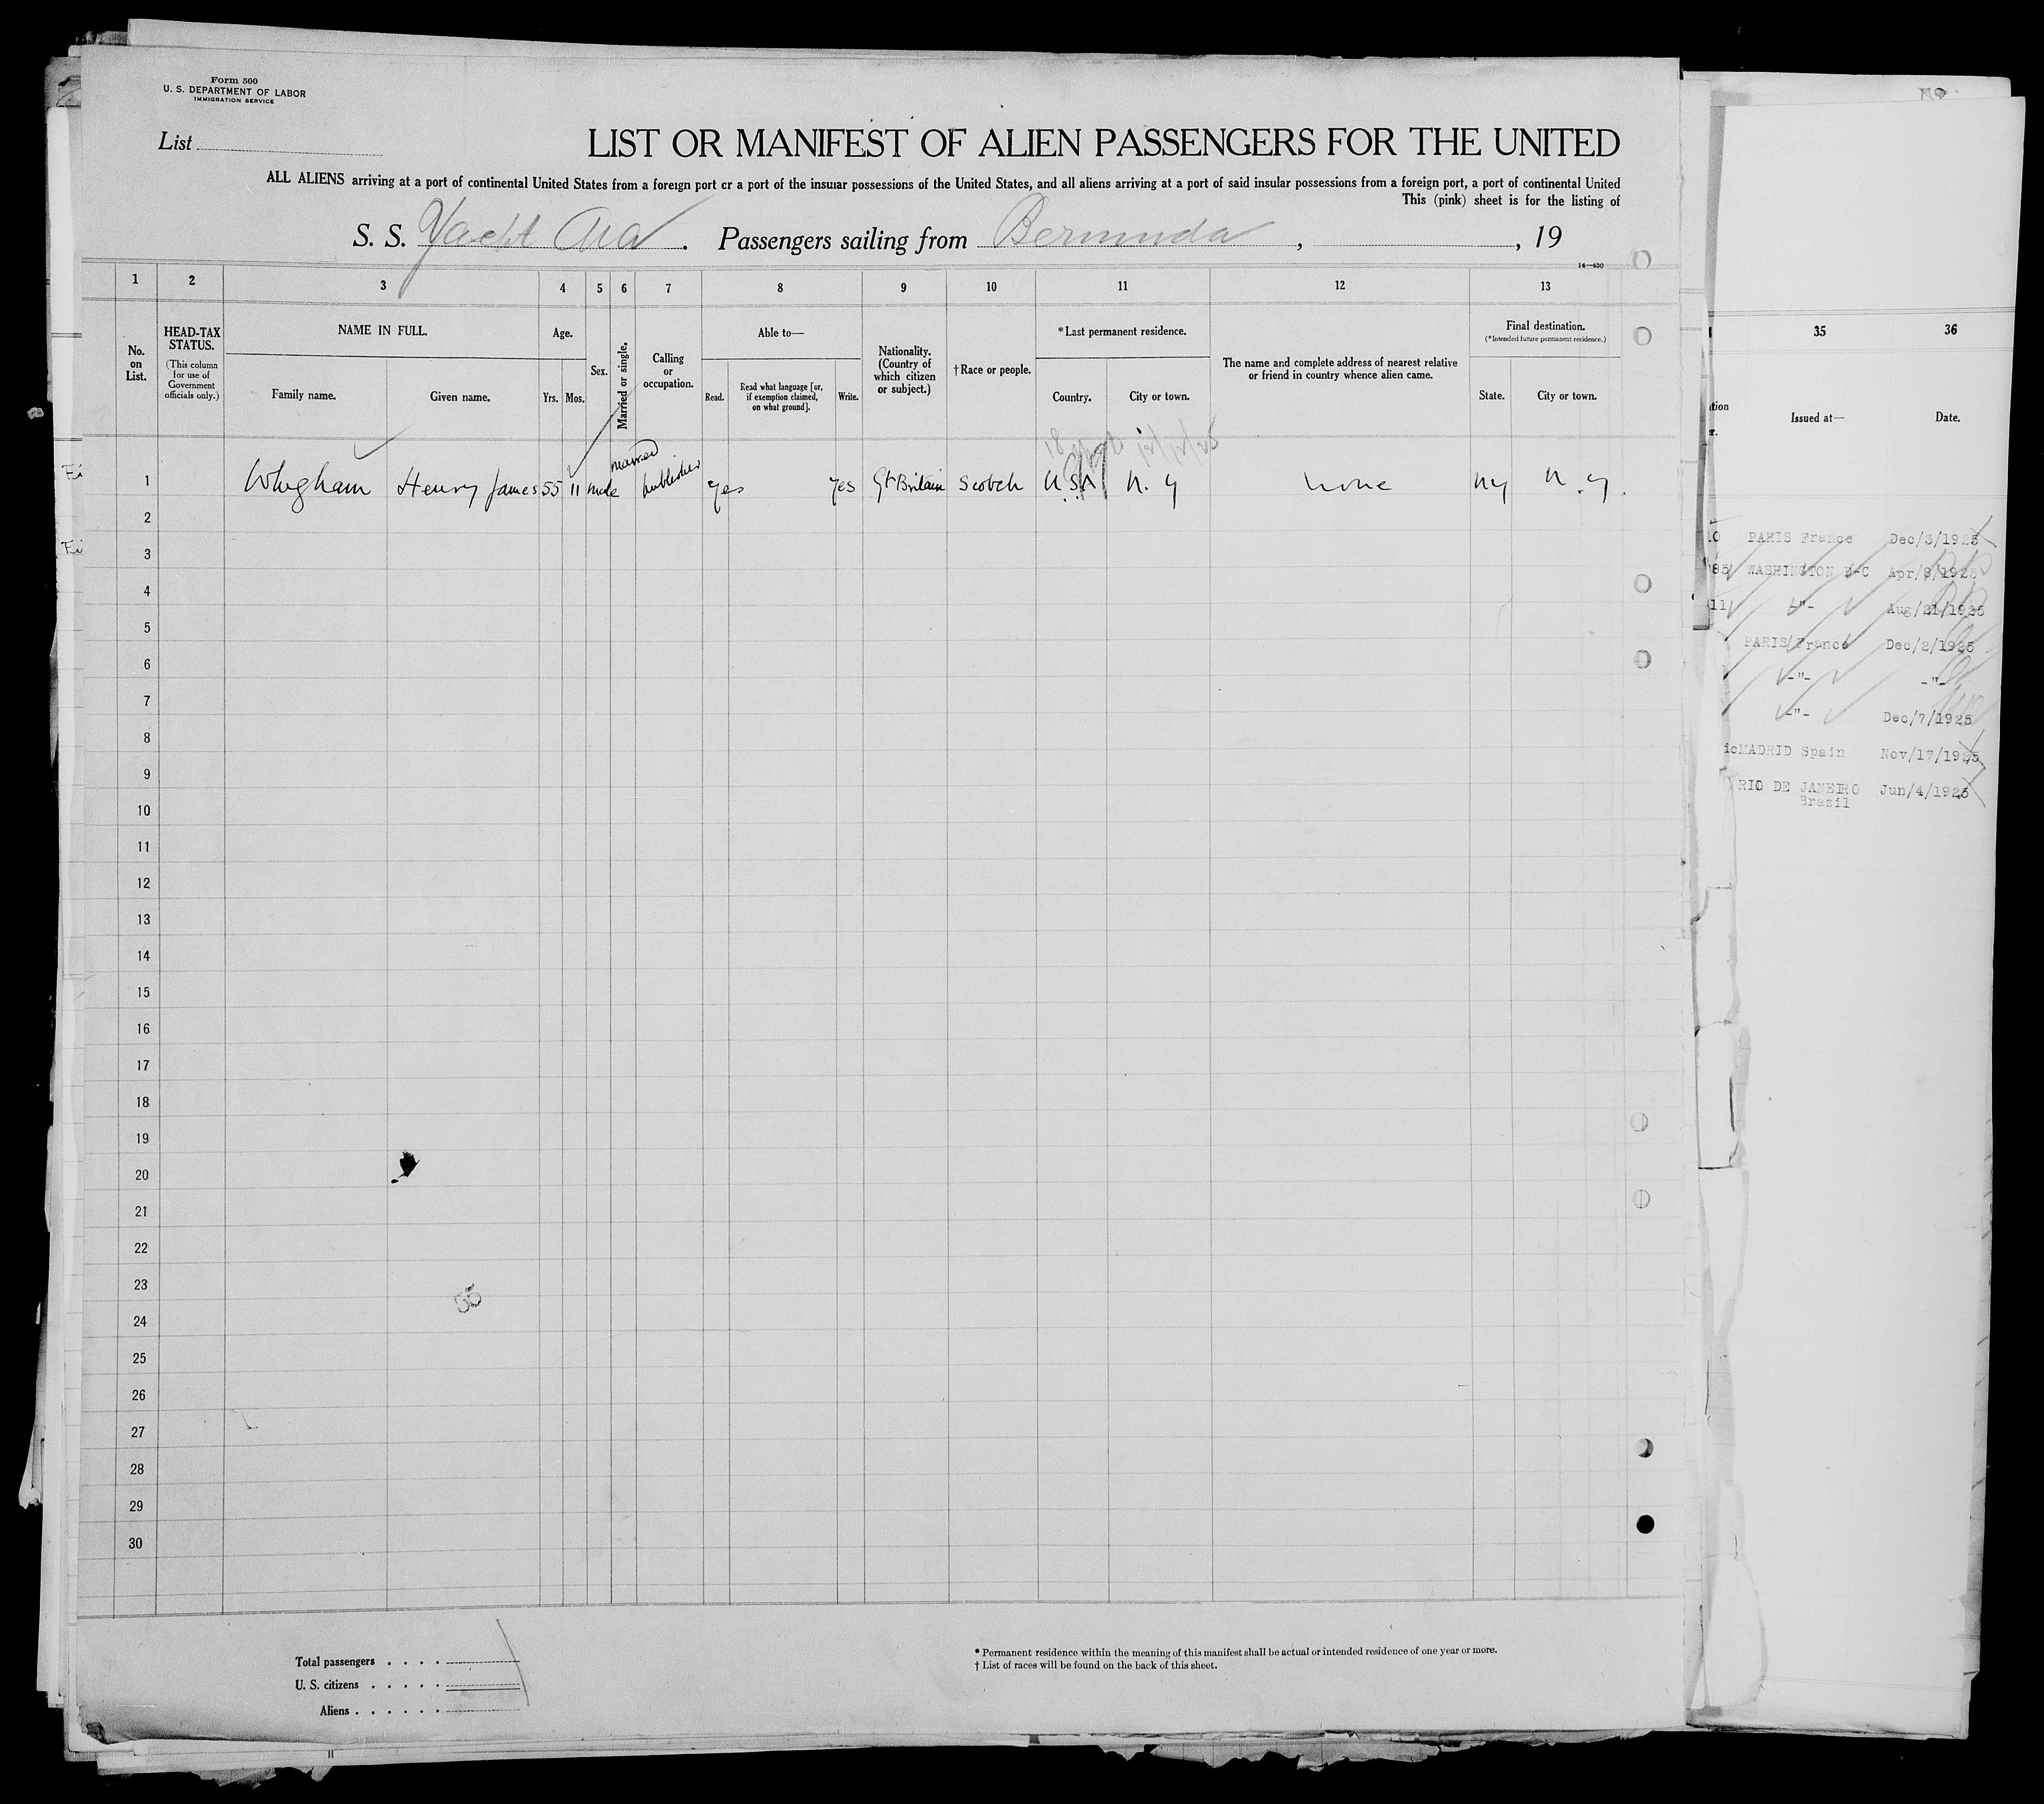 Form 500
U. S. DEPARTMENT OF LABOR
IMMIGRATION SERVICE
List
LIST OR MANIFEST OF ALIEN PASSENGERS FOR THE UNITED
ALL ALIENS arriving at a port of continental United States from a foreign port or a port of the insular possessions of the United States, and all aliens arriving at a port of said insular possessions from a foreign port, a port of continental United
This (pink) sheet is for the listing of
S. S. Yacht Ara. Passengers sailing from Bermuda, , 19
14—430
1 2 3 4 5 6 7 8 9 10 11 12 13
No. on List.
HEAD-TAX STATUS.
(This column for use of Government officials only.)
NAME IN FULL.
Family name.
Given name.
Age.
Yrs. Mos.
Sex.
Married or single.
Calling or occupation.
Able to—
Read.
Read what language [or, if exemption claimed, on what ground].
Write.
Nationality. (Country of which citizen or subject.)
†Race or people.
*Last permanent residence.
Country.
City or town.
The name and complete address of nearest relative or friend in country whence alien came.
Final destination.
(*Intended future permanent residence.)
State.
City or town.
1 Whigham Henry James 55 11 male married publisher yes yes Gt Britain Scotch U.S.A N. Y none NY N. Y.
2
3
4
5
6
7
8
9
10
11
12
13
14
15
16
17
18
19
20
21
22
23
24
25
26
27
28
29
30
55
Total passengers . . . .
U. S. citizens . . . . .
Aliens . . . . . .
* Permanent residence within the meaning of this manifest shall be actual or intended residence of one year or more.
† List of races will be found on the back of this sheet.
35 36
Issued at— Date.
PARIS France Dec/3/1925
85 WASHINGTON D-C Apr/8/1925
11 -"- Aug/21/1925
PARIS France Dec/2/1925
-"- -"-
-"- Dec/7/1925
MADRID Spain Nov/17/1925
RIO DE JANEIRO Jun/4/1925
Brazil